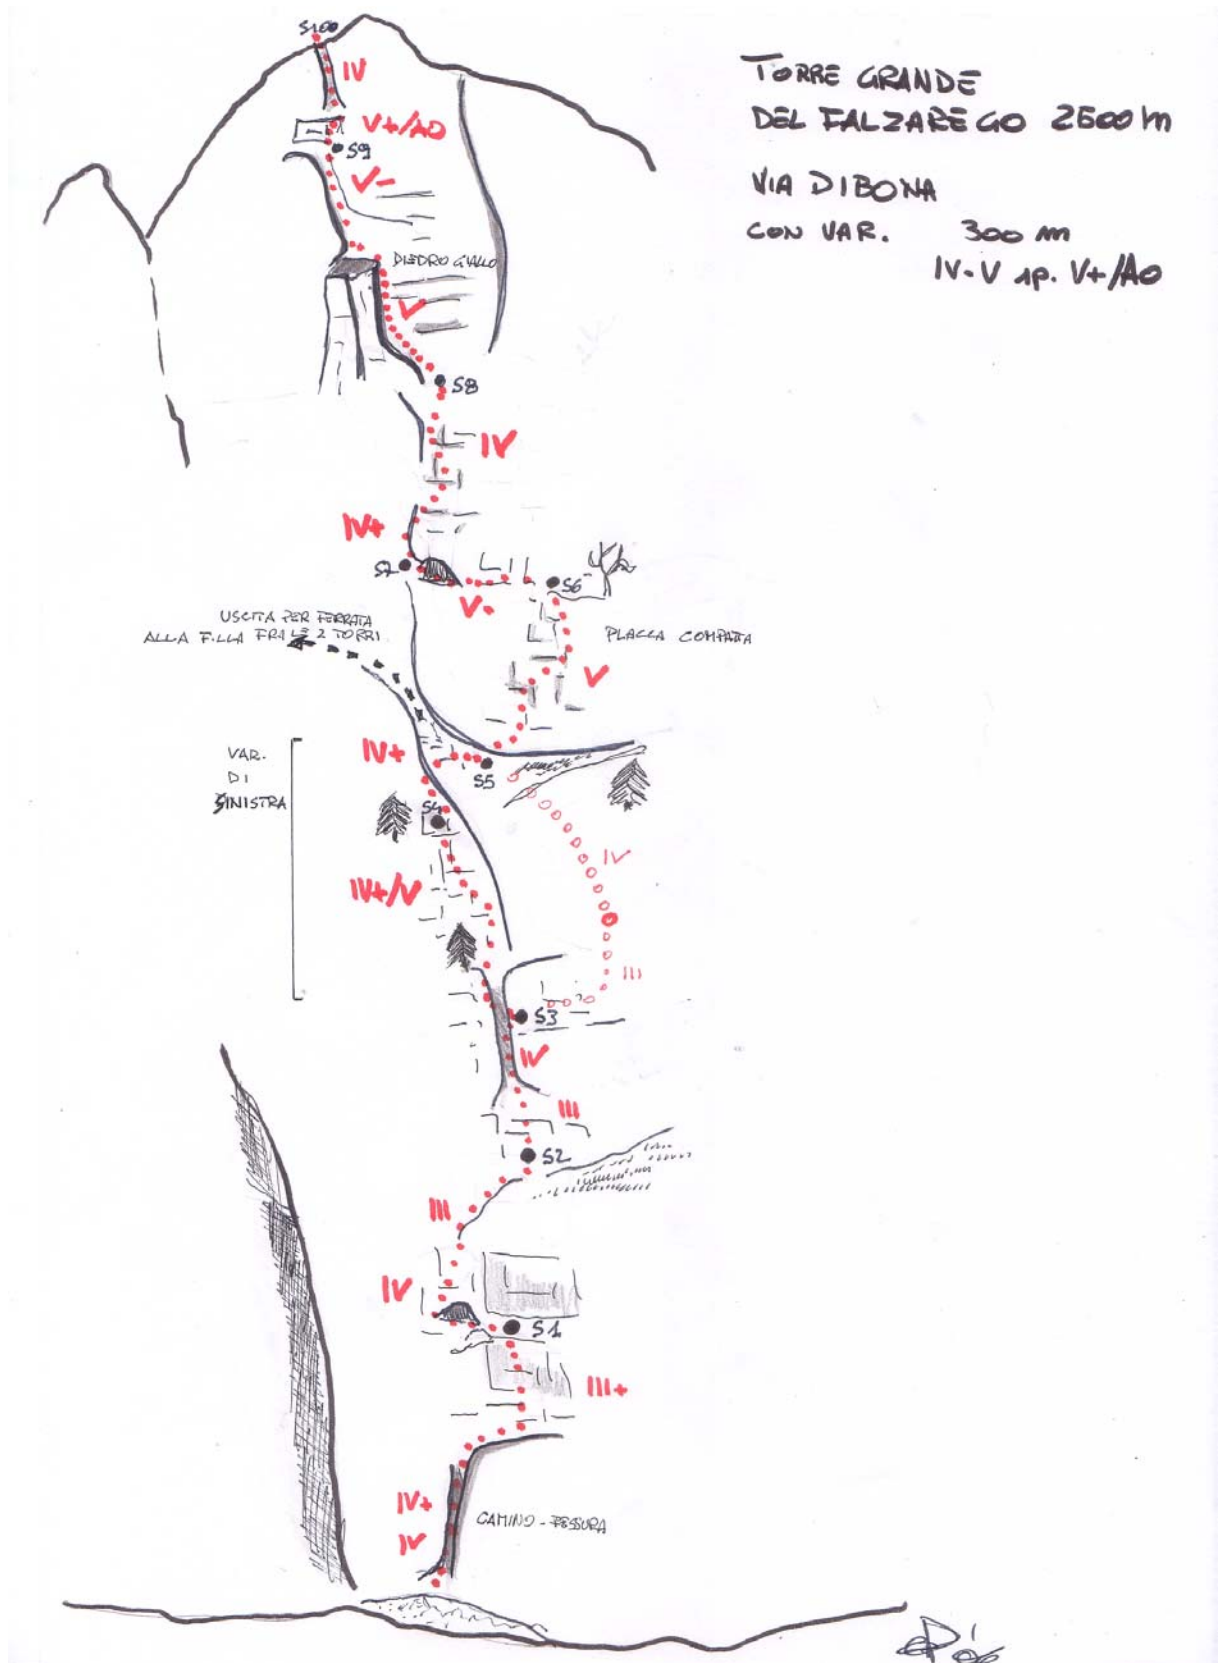 S10
TORRE GRANDE
DEL FALZAREGO 2500 m
VIA DIBONA
CON VAR. 300 m
IV-V sp. V+/A0
IV
V+/A0
S9
V-
DIEDRO GIALLO
V
S8
IV
IV+
S7
S6
V-
USCITA PER FERRATA
ALLA F.LLA FRA LE 2 TORRI
PLACCA COMPATTA
V
VAR.
DI
SINISTRA
IV+
S5
S4
IV
IV+/V
III
S3
IV
III
S2
III
IV
S1
III+
IV+
CAMINO - FESSURA
IV